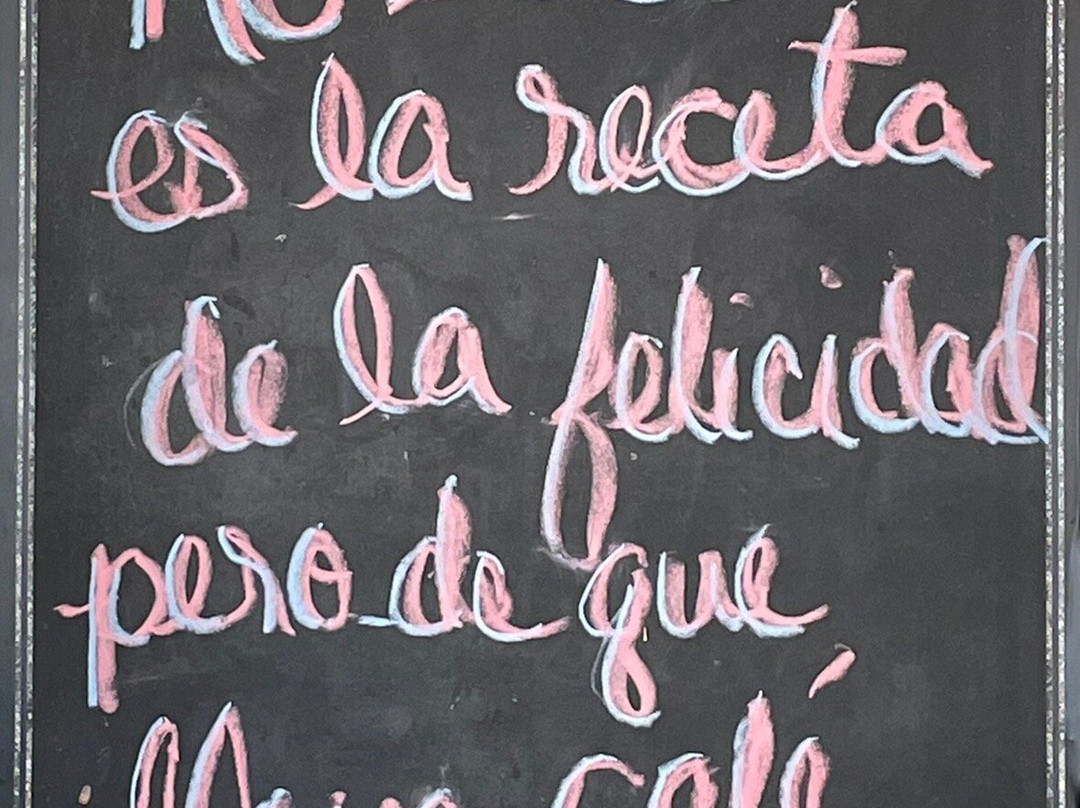 es la receta
de la felicidad
pero de que
lleva café